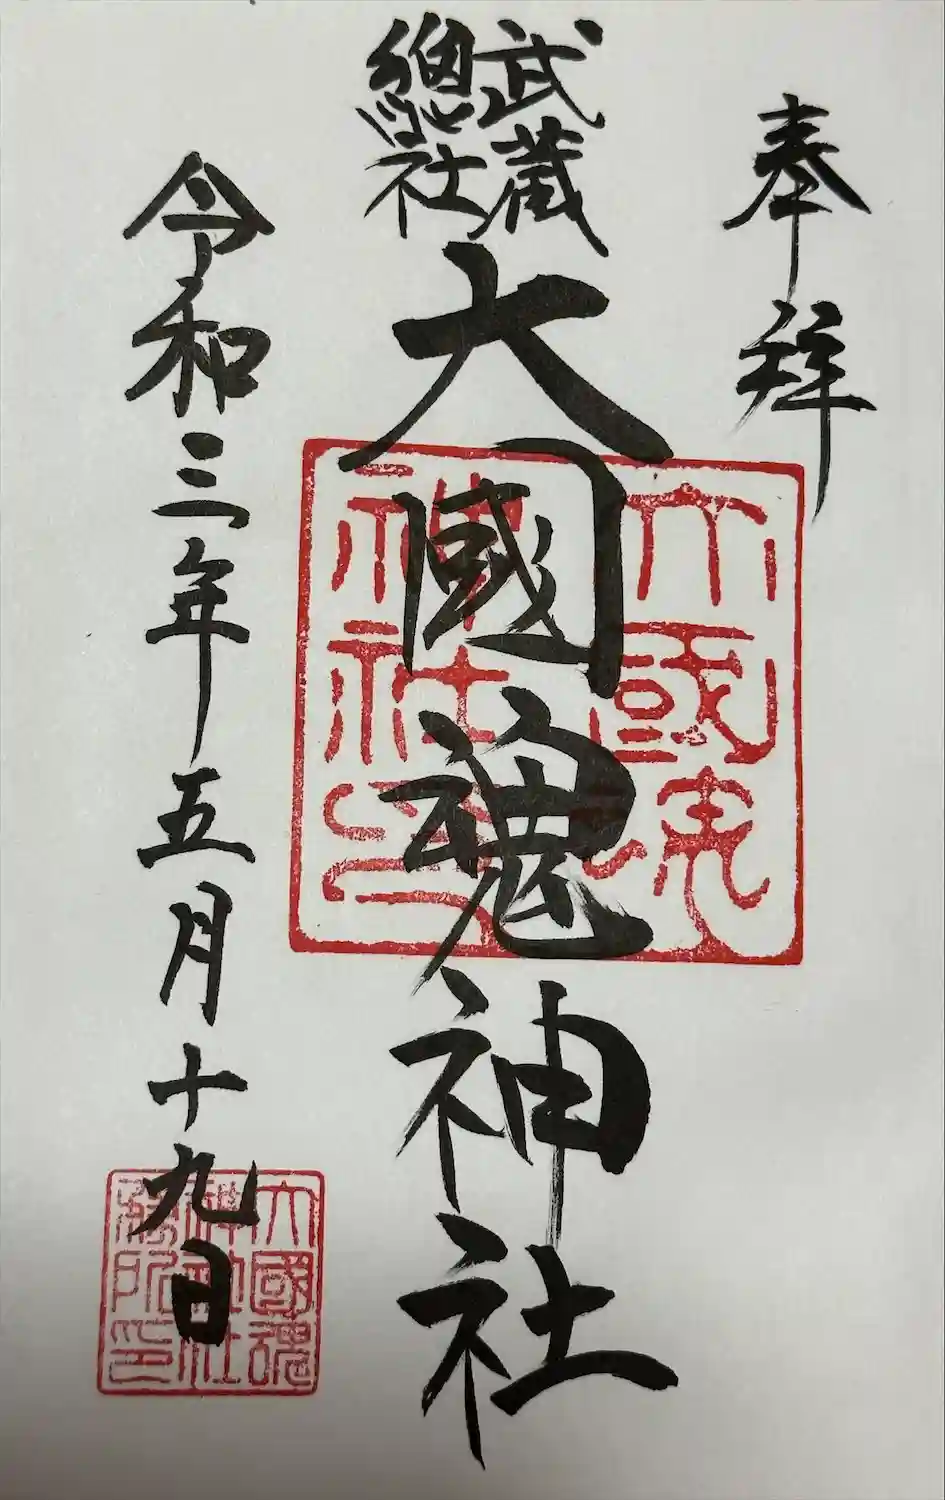 奉拝
武蔵
總社
大國魂神社
令和三年五月十九日
大國魂
神社印
大國魂
神社社
務所印